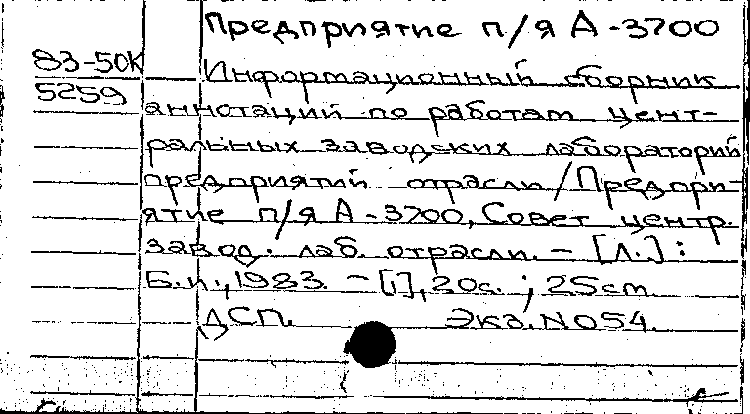 Предприятие п/я А-3700
83-50К
Информационный сборник
5259
аннотаций по работам цент-
ральных заводских лабораторий
предприятий отрасли/Предпри-
ятие п/я А-3700, Совет центр.
завод. лаб. отрасли. – [Л.] :
Б.и., 1983. – [1], 20с. ; 25см
ДСП. Экз.N054.